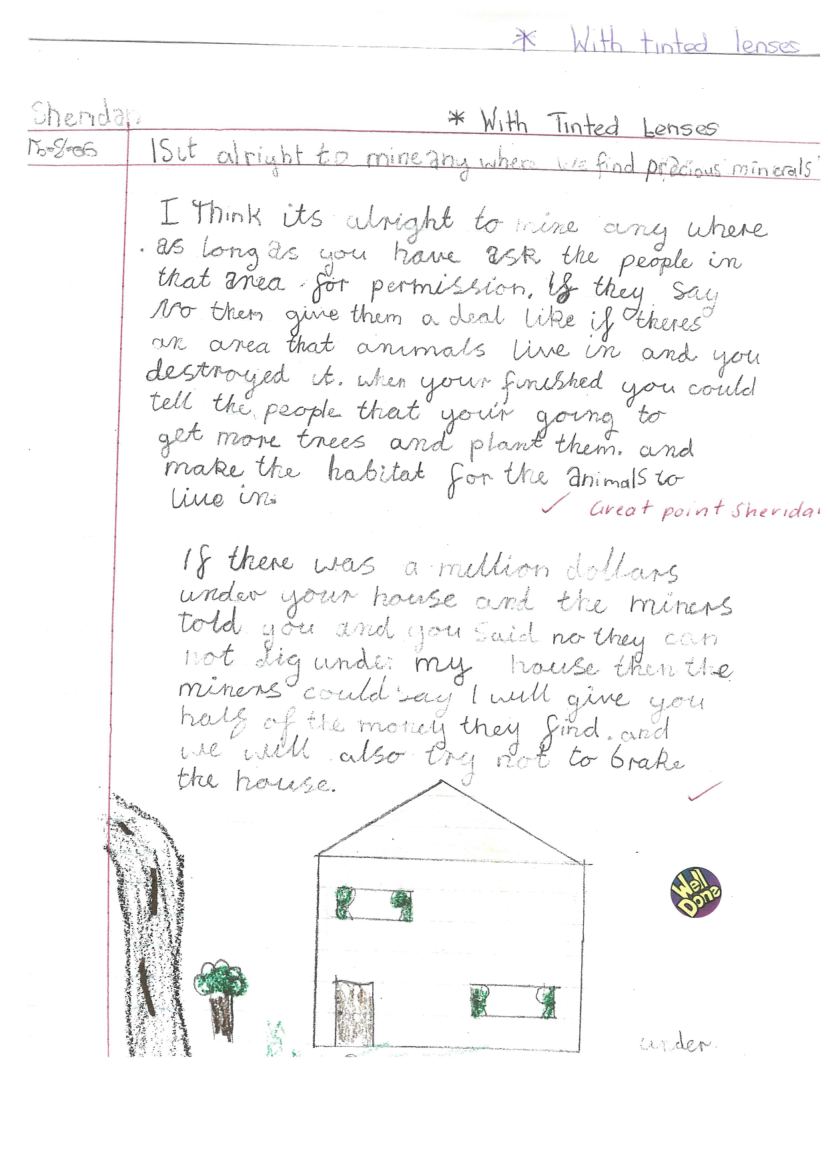 * With tinted lenses
Sheridan
* With Tinted Lenses
ISit alright to mine any where we find precious minerals
I Think its alright to mine any where
as long as you have ask the people in
that area for permission. If they say
No then give them a deal like if theres
an area that animals live in and you
destroyed it. when your finished you could
tell the people that your going to
get more trees and plant them. and
make the habitat for the animals to
live in.
Great point Sherida
If there was a million dollars
under your house and the miners
told you and you said no they can
not dig under my house then the
miners could say I will give you
half of the money they find. and
we will also try not to brake
the house.
Well
Done
under